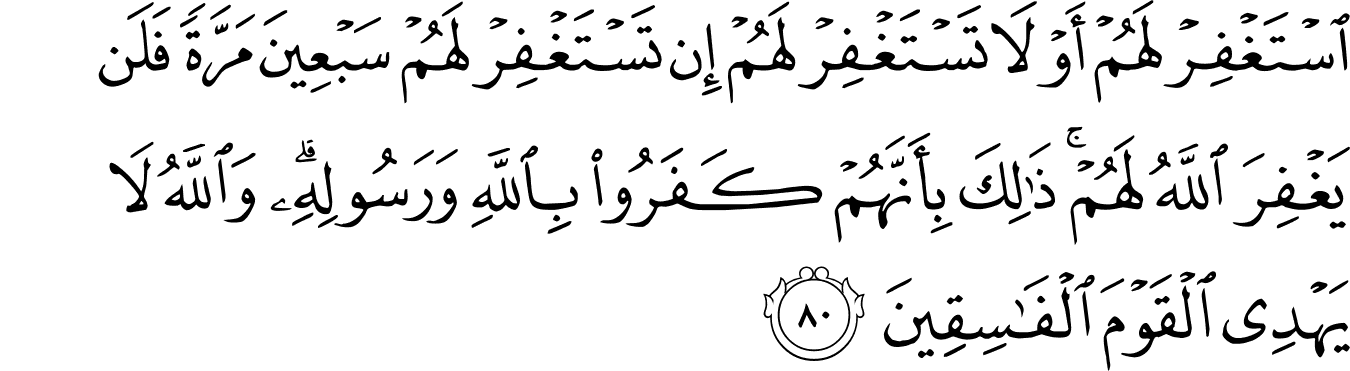 ٱسْتَغْفِرْ لَهُمْ أَوْ لَا تَسْتَغْفِرْ لَهُمْ إِن تَسْتَغْفِرْ لَهُمْ سَبْعِينَ مَرَّةً فَلَن
يَغْفِرَ ٱللَّهُ لَهُمْ ۚ ذَٰلِكَ بِأَنَّهُمْ كَفَرُوا۟ بِٱللَّهِ وَرَسُولِهِۦ ۗ وَٱللَّهُ لَا
يَهْدِى ٱلْقَوْمَ ٱلْفَـٰسِقِينَ ٨٠